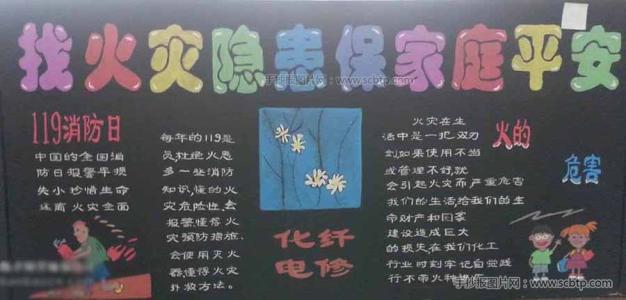 找火灾隐患保家庭平安
手抄报图片网：www.scbtp.com
119消防日
中国的全国
防日报警早损
失小珍惜生命
远离火灾全面
每年的119是
员杜绝火患
多一些消防
知识,懂的火
灾危险性,会
报警懂得火
灾预防措施,
会使用灭火
器懂得火灾
扑救方法。
化纤
电修
火的
危害
火灾在生
活中是一把双刃
剑如果使用不当
或管理不好就
会引起火灾而严重危害
我们的生活给我们的生
命财产和国家
建设造成巨大
的损失在我们化工
行业时刻牢记自觉践
行不带火种
手抄报图片网：www.scbtp.com